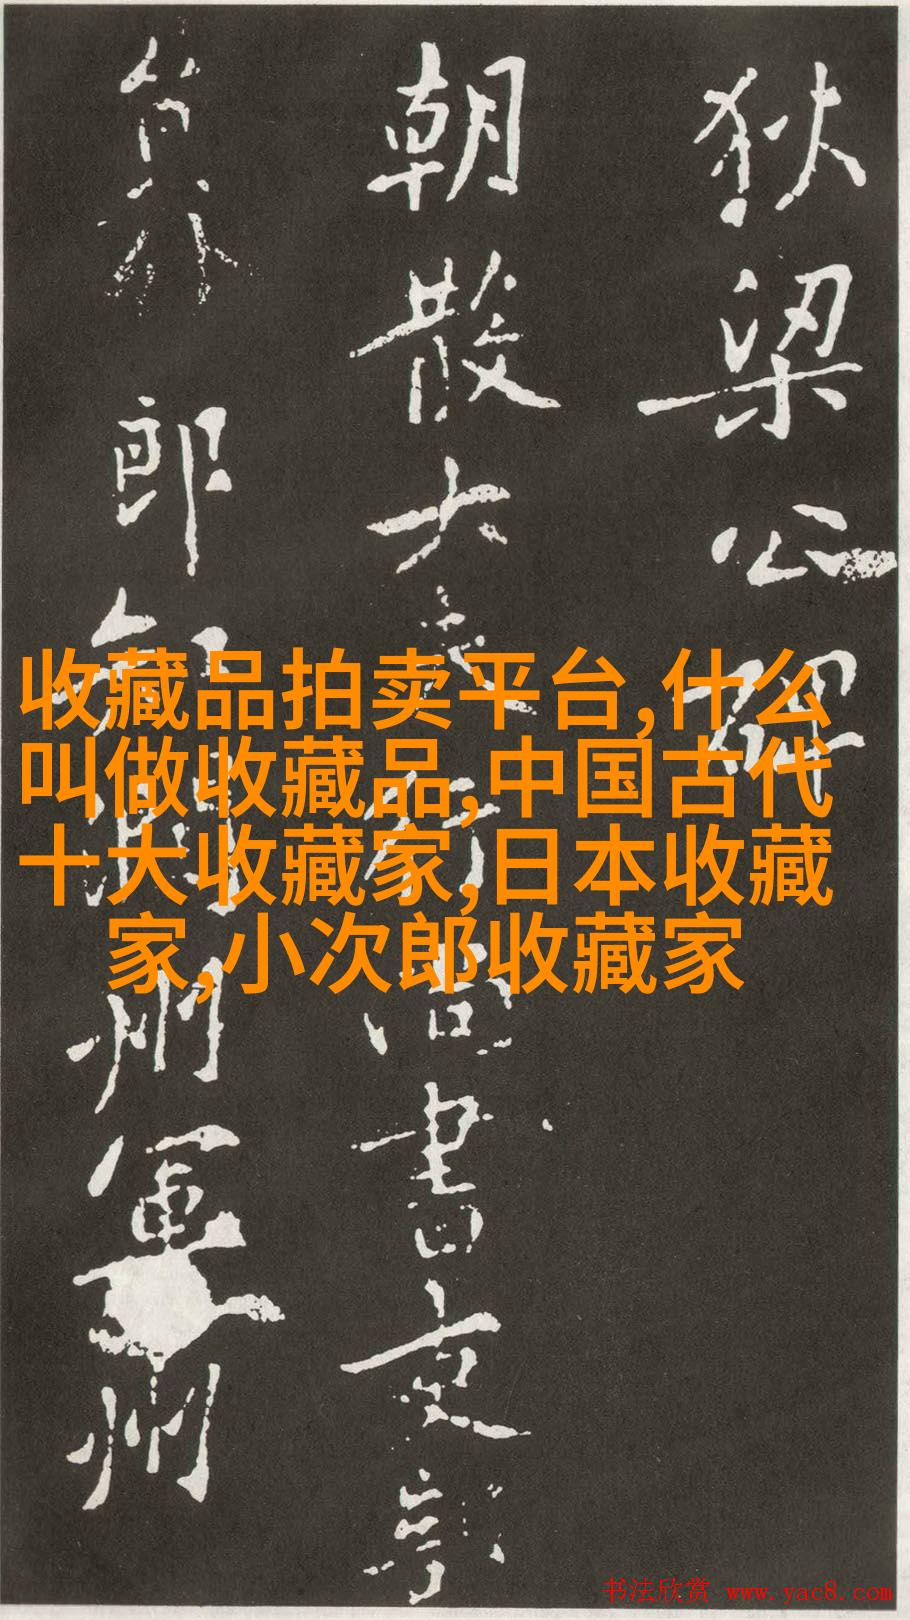 狄梁公碑
朝散大夫行尚書吏部
員外郎知潤州軍州
收藏品拍卖平台,什么
叫做收藏品,中国古代
十大收藏家,日本收藏
家,小次郎收藏家
书法欣赏 www.yac8.com